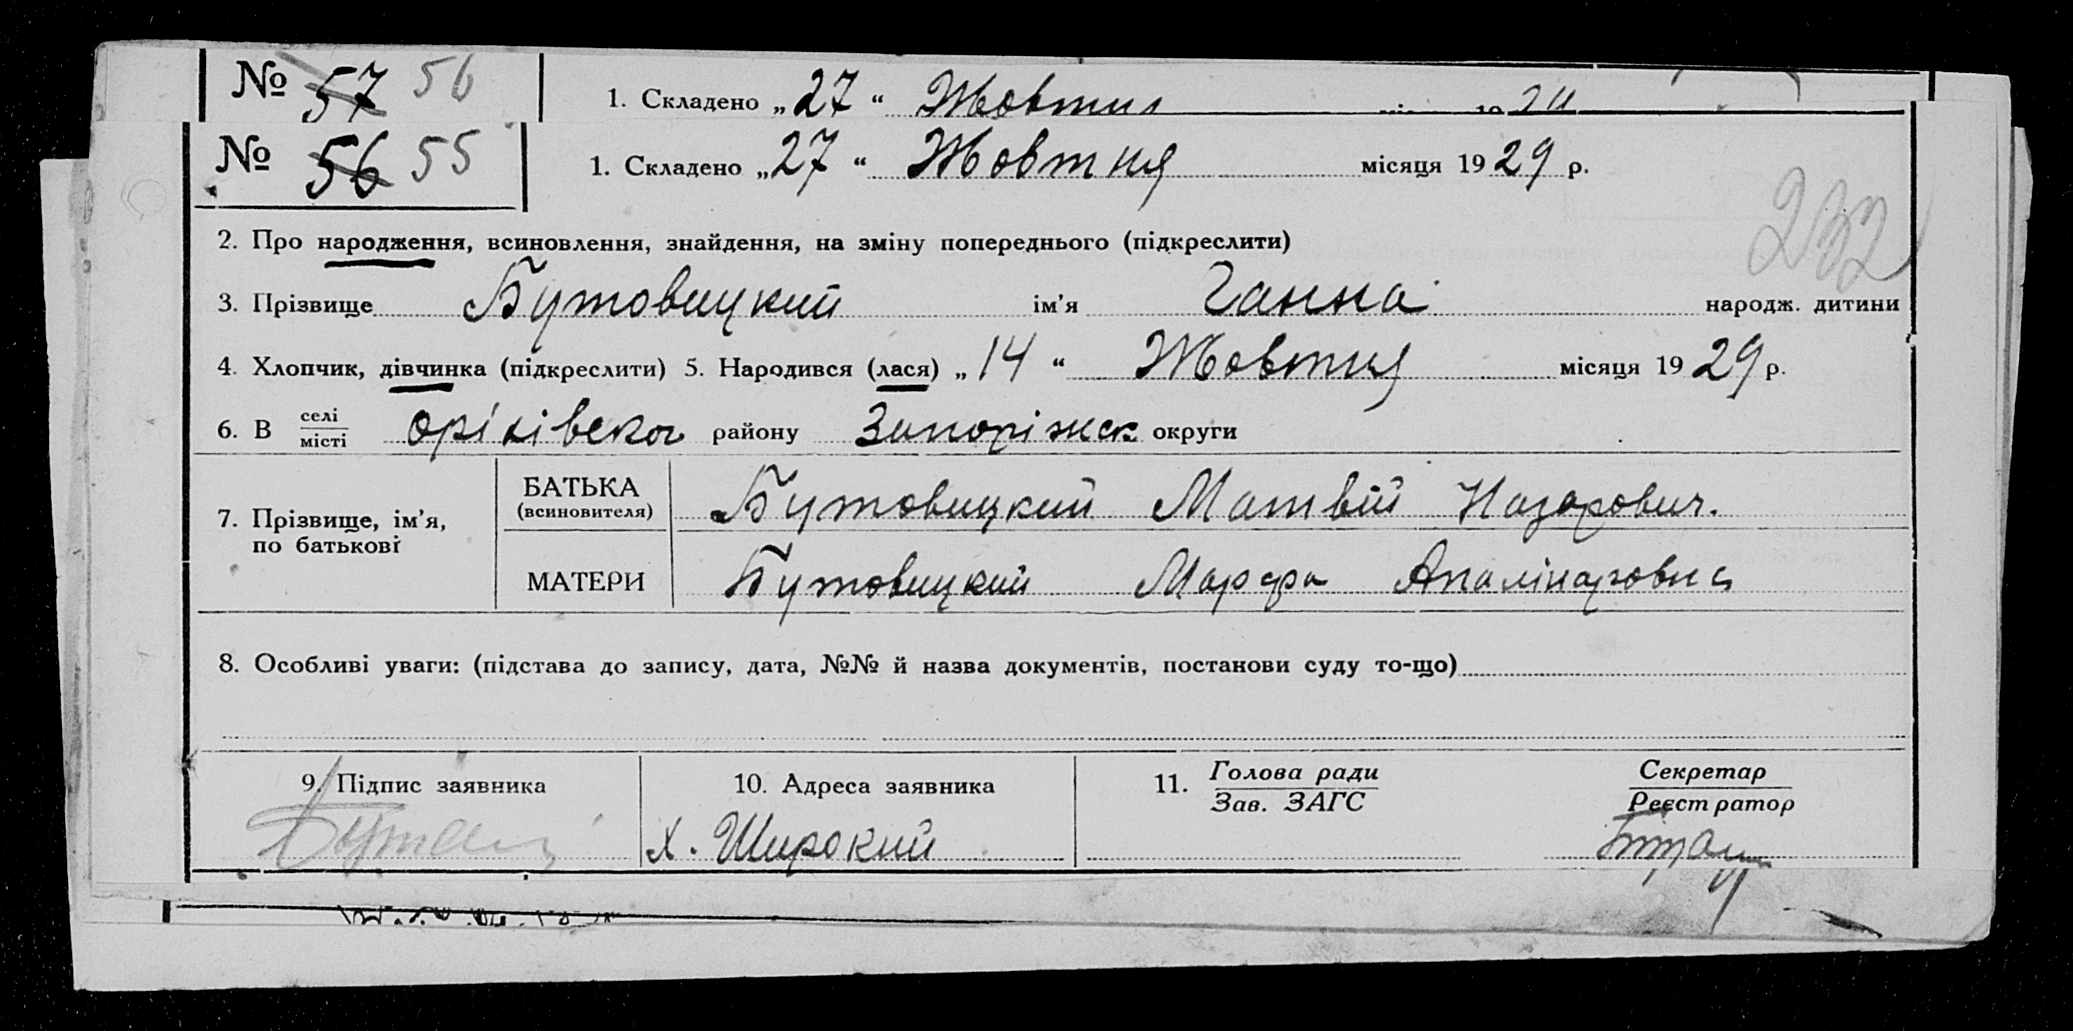 № 57 56
1. Складено „27“ Жовтня
№ 56 55
1. Складено „27“ Жовтня місяця 1929 р.
232
2. Про народження, всиновлення, знайдення, на зміну попереднього (підкреслити)
3. Прізвище Бутовицкий ім’я Ганна народж. дитини
4. Хлопчик, дівчинка (підкреслити) 5. Народився (лася) „14“ Жовтня місяця 1929 р.
6. В селі/місті Оріхівськог району Запоріжск округи
7. Прізвище, ім’я, по батькові
БАТЬКА (всиновителя) Бутовицкий Матвій Назарович.
МАТЕРИ Бутовицкий Марфа Аполінаровна
8. Особливі уваги: (підстава до запису, дата, №№ й назва документів, постанови суду то-що)
9. Підпис заявника
10. Адреса заявника
х. Широкий
11. Голова ради / Зав. ЗАГС
Секретар / Реєстратор